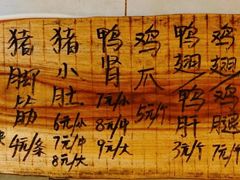 猪脚筋
4元/条
猪小肚
6元/小
7元/中
8元/大
鸭肾
7元/小
8元/中
9元/大
鸡爪
5元/个
鸭翅/鸭肝
3元/个
鸡翅/鸡腿
7元/个